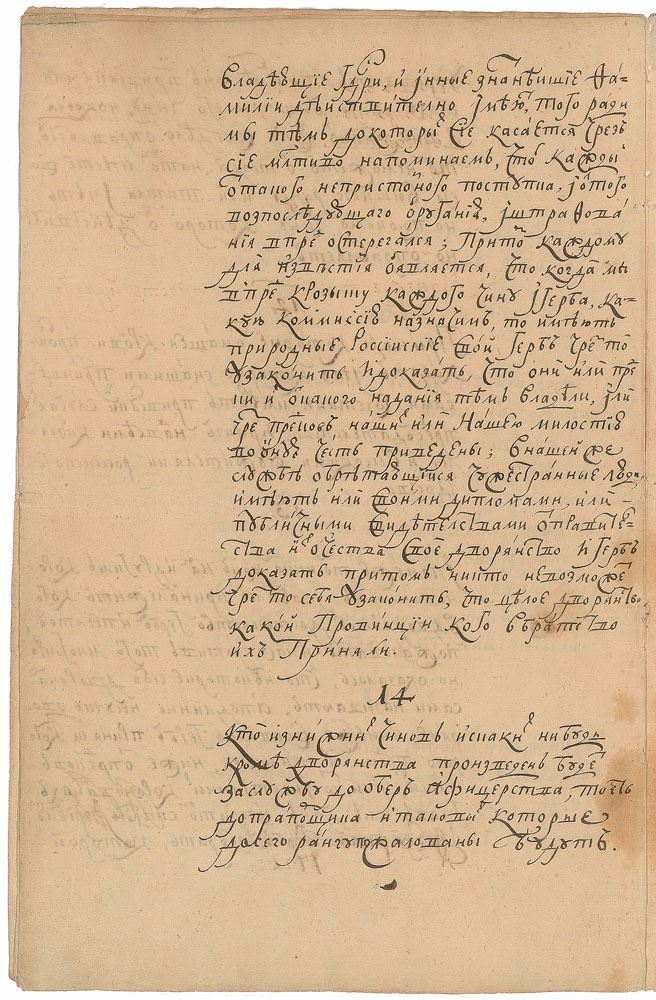 владѣющїе Гдри, и iнные знатнѣишiе фа-
милiи дѣйствително iмѣю, того ради
мы тѣмъ до которы сiе касается чрезъ
сiе млтиво напоминаемъ, что кажды
отакого непристойного поступка, i отого
возпослѣдующаго оругания, iштрафова
нiя впре остерегался; Прито каждому
для извѣстия объявляется, что когда мы
впре крозыску каждого чину iгерба, ка-
кую комиисiю назначимъ, то имѣютъ
природные Россiискiе свой гербъ чре то
узаконить идоказать, что они или пре
ки и отакого надания тѣмъ владѣли, iли
чре предковъ наши или Нашею милостию
воную честь приведены; Внашей же
службѣ обрѣтающiися чужестранные люди
имѣютъ или своими дипломами, или
публичными свидѣтелствами оправите-
ства и отчества свое дворянство и гербъ
доказать притомъ никто невозможе
чре то себя узаконить, что цѣлое дворянство
какой Провинции кого вбратство
ихъ Приняли.
14
Кто изнижни чиновъ иизкаки нибудь
кромѣ дворянства произведенъ буде
заслужбу до оберъ афицерства, тоесь
допрапощика итаковы которые
досего рангу пожалованы будутъ.